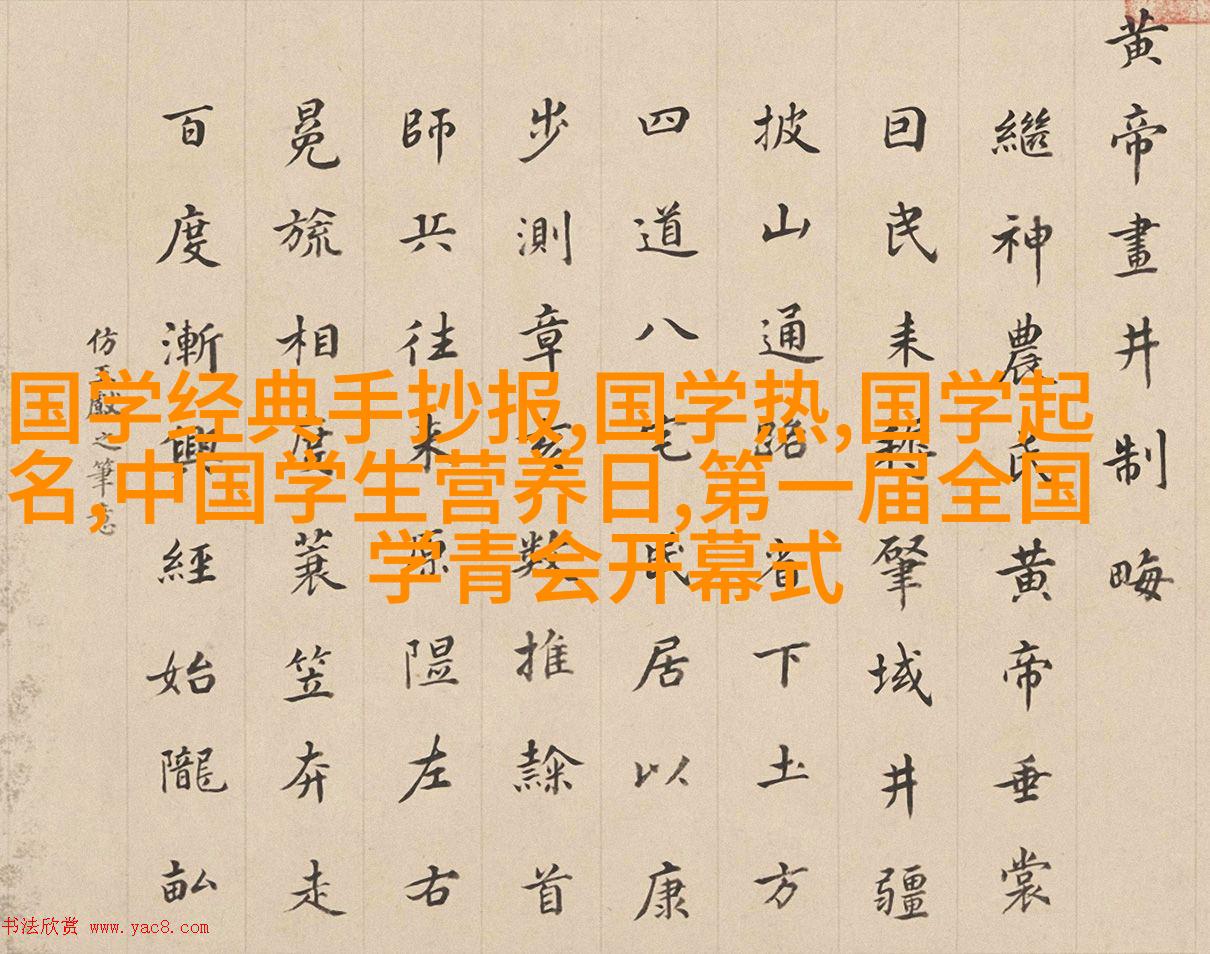 黄帝畫井制畮
繼神農氏黄帝垂裳
囙民耒肇域井疆
披山通路下土方
四道八宅民居以康
步測章亥數推隸首
師兵往来原隰左右
冕旒相度蓑笠奔走
百度漸興經始隴畝
仿王獻之筆意
国学经典手抄报,国学热,国学起
名,中国学生营养日,第一届全国
学青会开幕式
书法欣赏 www.yac8.com